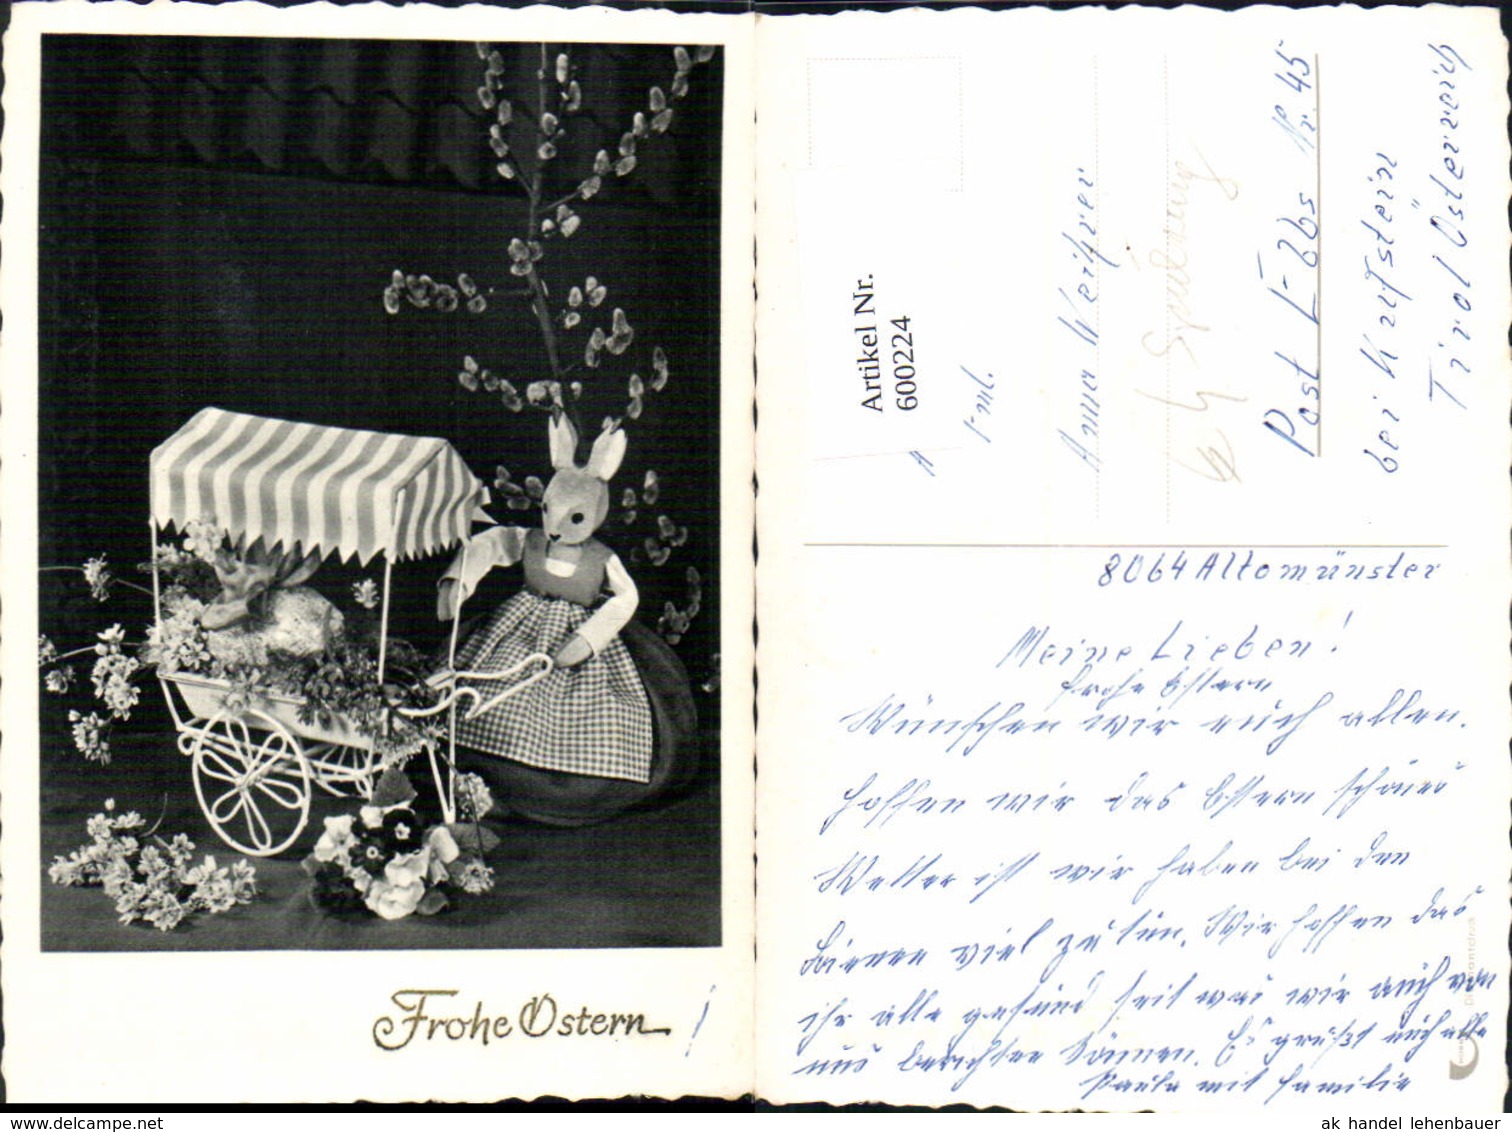 Frohe Ostern !
Artikel Nr.
600224
Anna
Post Ebbs Nr. 45
bei Kufstein
Tirol Österreich
8064 Altomünster
Meine Lieben!
frohe Ostern
Wünschen wir euch allen.
hoffen wir das Ostern schönes
Wetter ist wir haben bei den
Bienen viel zu tun. Wir hoffen das
ihr alle gesund seit was wir auch von
uns berichten können. Es grüßt euch alle
Paula mit Familie
ak-ansichtskarten.de
ak handel lehenbauer